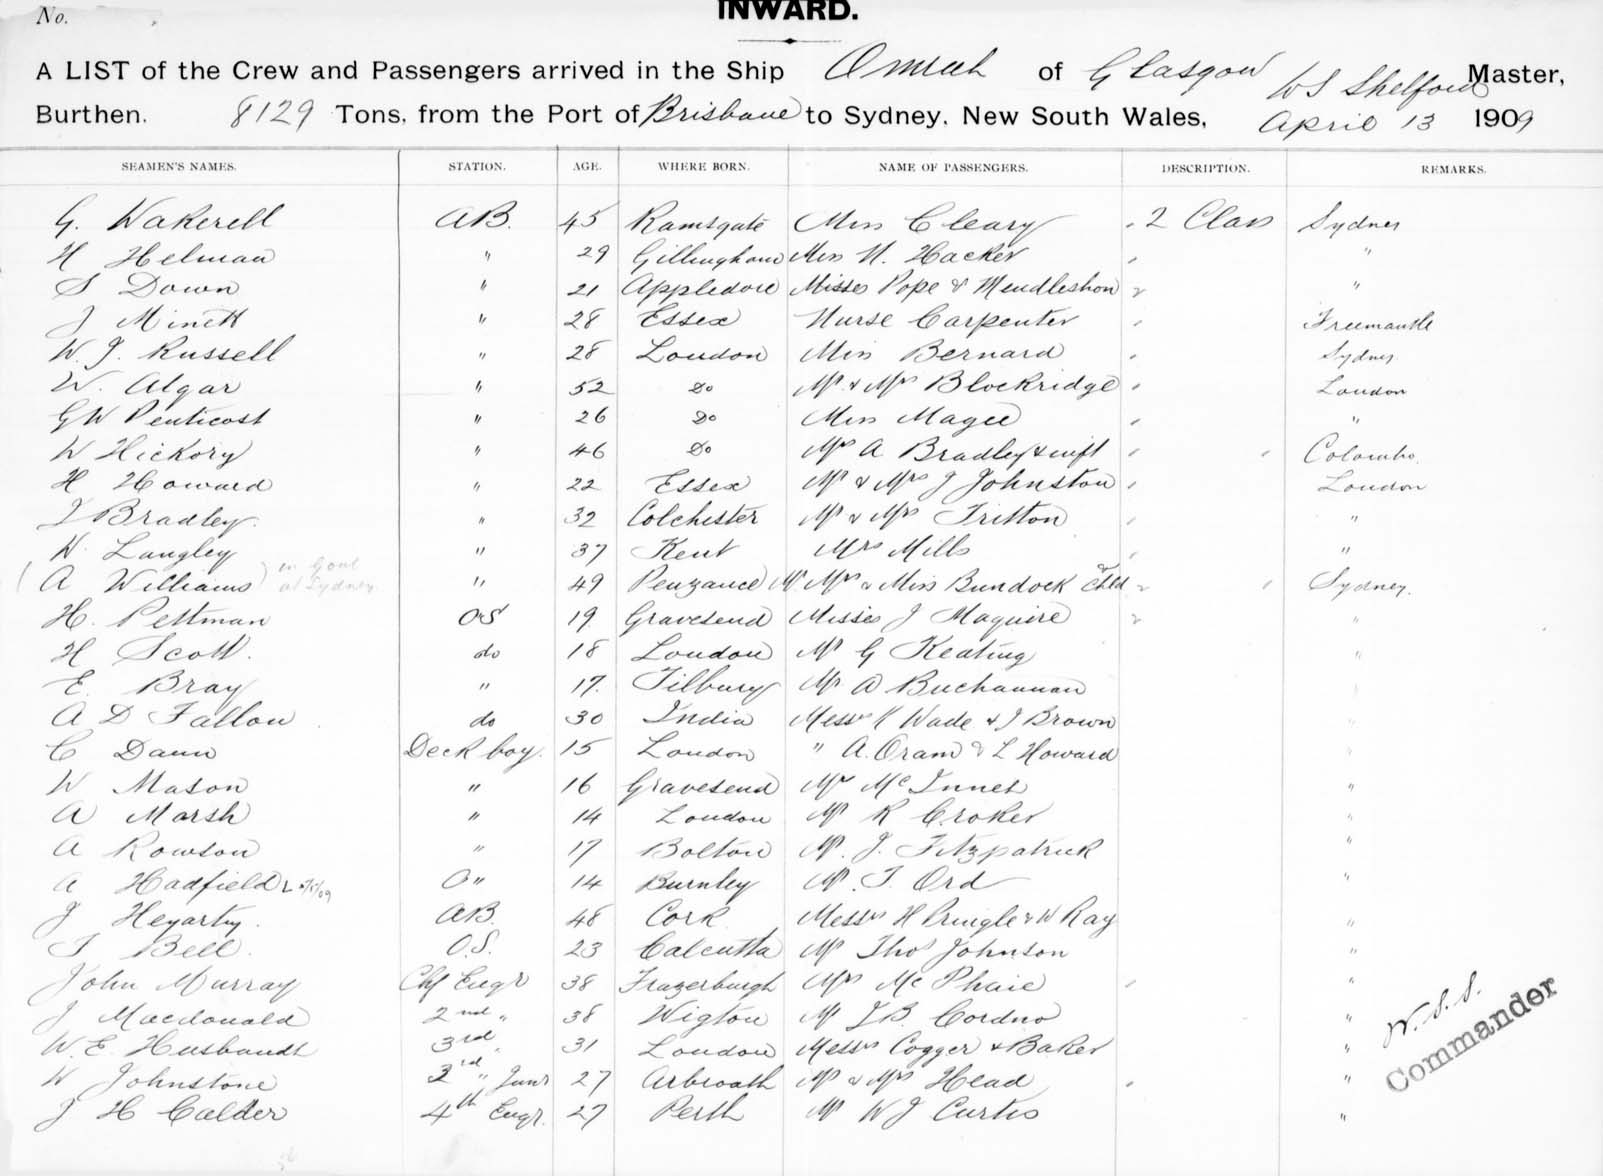 No.
INWARD.
A LIST of the Crew and Passengers arrived in the Ship Omrah of Glasgow W S Shelford Master,
Burthen. 8129 Tons, from the Port of Brisbane to Sydney, New South Wales, April 13 1909
SEAMEN'S NAMES. STATION. AGE. WHERE BORN. NAME OF PASSENGERS. DESCRIPTION. REMARKS.
G. Wakerell AB. 45 Ramsgate Miss Cleary 2 Class Sydney
H Helman " 29 Gillingham Miss N. Hacker "
S Down " 21 Appledore Misses Pope & Mendleshon "
J Minett " 28 Essex Nurse Carpenter Freemantle
W. J. Russell " 28 London Miss Bernard Sydney
W. Algar " 52 Do Mr & Mrs Blockridge London
G W Penticost " 26 Do Miss Magee "
W Hickory " 46 Do Mr A Bradley & wife Colombo
H Howard " 22 Essex Mr & Mrs J Johnston London
J Bradley. " 32 Colchester Mr & Mrs Tritton "
W. Langley " 37 Kent Mrs Mills "
(A Williams) in Gaol at Sydney " 49 Penzance Mr Mrs & Miss Bundock & Chld Sydney.
H. Pettman OS 19 Gravesend Misses J Maguire "
H Scott. do 18 London Mr G Keating "
E. Bray " 17. Tilbury Mr A Buchannan
A D Fallon do 30 India Messrs K Wade & J Brown "
C Dann Deck boy. 15 London " A. Oram & L Howard "
W Mason " 16 Gravesend Mr McInnes "
A Marsh " 14 London Mr R Croker "
A Rowson " 17 Bolton Mr. J. Fitzpatrick "
A Hadfield O " 14 Burnley Mr. T. Ord "
J Hegarty. AB. 48 Cork Messrs H Pringle & W Ray "
T Bell. O.S. 23 Calcutta Mr Thos Johnson "
John Murray Chf Engr 38 Frazerburgh Mrs Mc Phaie "
J Macdonald 2nd " 38 Wigton Mr J B. Cordno "
W. E. Husbands 3rd " 31 London Messrs Cogger & Baker "
W Johnstone 3rd " Junr 27 Arbroath Mr & Mrs Head "
J H Calder 4th Engr. 27 Perth Mr W J Curtis "
W. S. S.
Commander